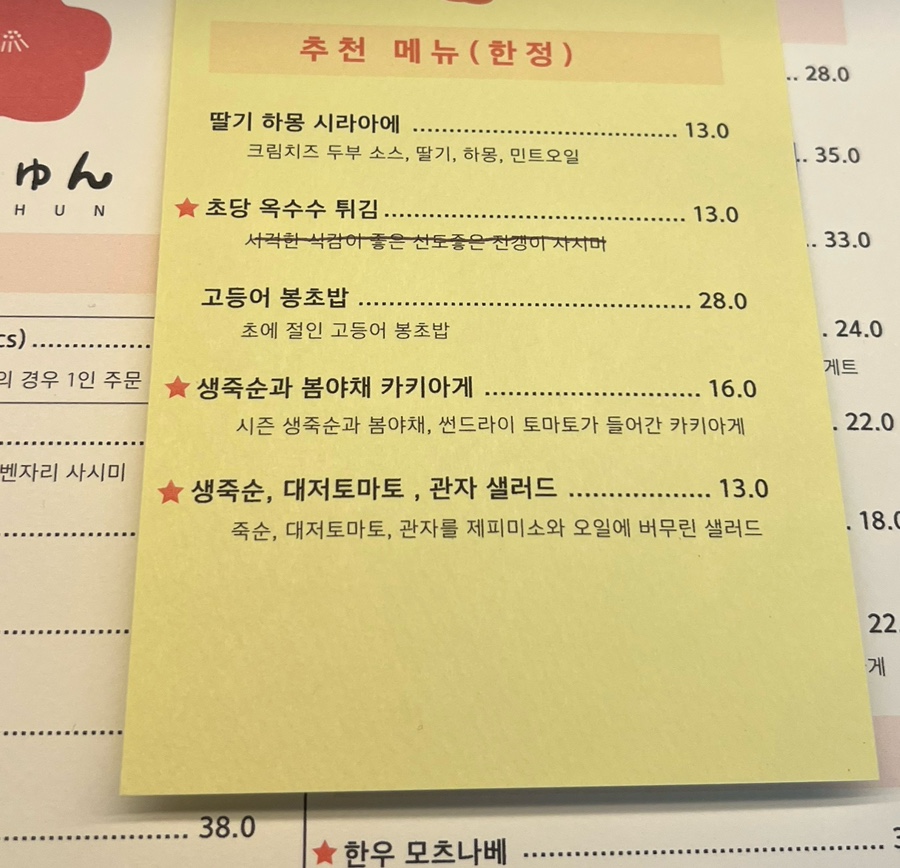 추천 메뉴(한정)
딸기 하몽 시라아에 ........................ 13.0
크림치즈 두부 소스, 딸기, 하몽, 민트오일
★ 초당 옥수수 튀김 ........................ 13.0
서걱한 식감이 좋은 선도좋은 전갱이 사시미
고등어 봉초밥 ........................ 28.0
초에 절인 고등어 봉초밥
★ 생죽순과 봄야채 카키아게 ........................ 16.0
시즌 생죽순과 봄야채, 썬드라이 토마토가 들어간 카키아게
★ 생죽순, 대저토마토 , 관자 샐러드 ................. 13.0
죽순, 대저토마토, 관자를 제피미소와 오일에 버무린 샐러드
ゅん
HUN
cs)
의 경우 1인 주문
벤자리 사시미
38.0
★ 한우 모츠나베
28.0
35.0
33.0
24.0
게트
22.0
18.0
22.
게